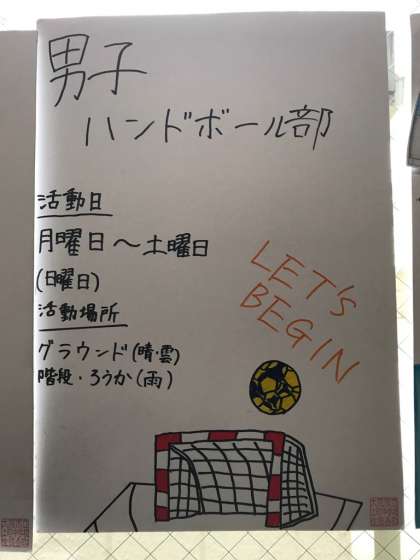 男子
ハンドボール部
活動日
月曜日〜土曜日
(日曜日)
活動場所
グラウンド(晴・雲)
階段・ろうか(雨)
LET'S
BEGIN